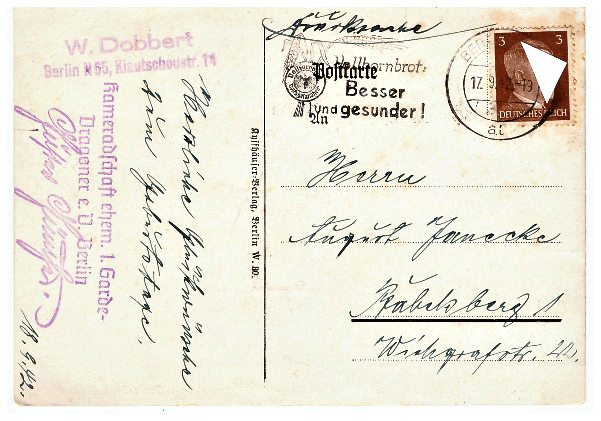 W. Dobbert
Berlin N 65, Kiautschoustr. 14
Kameradschaft ehem. 1. Garde-
Dragoner e. V. Berlin
Herzliche Glückwünsche
zum Geburtstage.
18.9.42.
Kyffhäuser-Verlag, Berlin W. 30.
Drucksache
Postkarte
Vollkornbrot:
Besser
und gesunder!
An
17.9.
3 3
DEUTSCHES REICH
Herrn
August Janecke
Babelsberg 1
Wichgrafstr. 22.